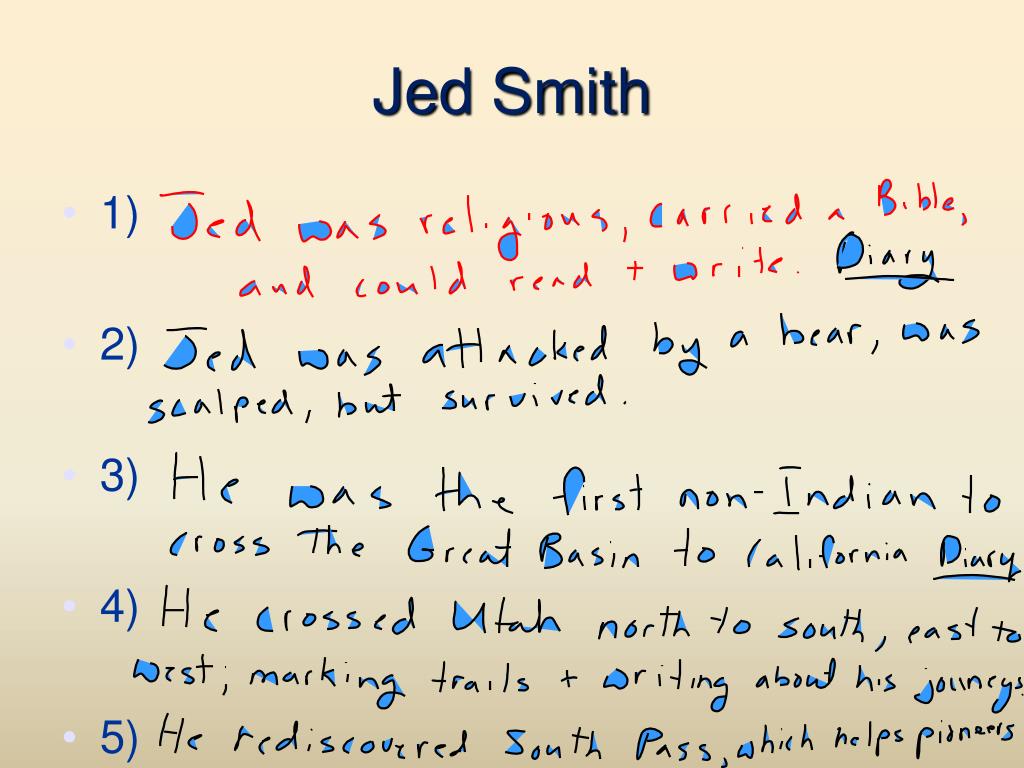 Jed Smith
• 1) Jed was religious, carried a Bible,
and could read + write. Diary
• 2) Jed was attacked by a bear, was
scalped, but survived.
• 3) He was the first non-Indian to
cross the Great Basin to California Diary
• 4) He crossed Utah north to south, east to
west, marking trails + writing about his journeys
• 5) He rediscovered South Pass, which helps pioneers